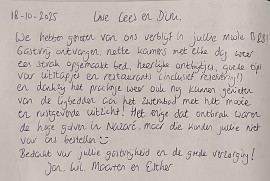 18-10-2025 Lieve Cees en Dini,
We hebben genoten van ons verblijf in jullie mooie B&B!
Gastvrij ontvangen, nette kamers met elke dag weer
een strak opgemaakt bed, heerlijke ontbijtjes, goede tips
voor uitstapjes en restaurants (inclusief reservering!)
en dankzij het prachtige weer ook nog kunnen genieten
van de ligbedden aan het zwembad met het mooie
en rustgevende uitzicht! Het enige dat ontbrak waren
de hoge golven in Nazaré, maar die konden jullie niet
voor ons bestellen
Bedankt voor jullie gastvrijheid en de goede verzorging!
Jan, Wil, Maarten en Esther